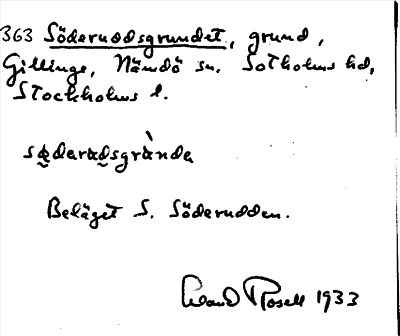 363 Söderuddsgrundet, grund,
Gillinge, Nämdö sn. Sotholms hd,
Stockholms l.
sǝderudsgrùndǝ
Beläget S. Söderudden.
Rosell 1933